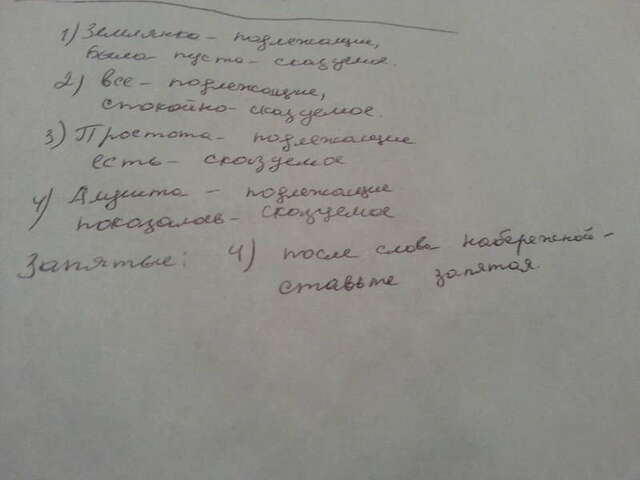 1) Землянка - подлежащие,
была пуста - сказуемое.
2) все - подлежащие,
спокойно - сказуемое.
3) Простота - подлежащие
есть - сказуемое
4) - подлежащие
показалась - сказуемое
Запятые: 4) после слова набережной -
ставьте запятая.